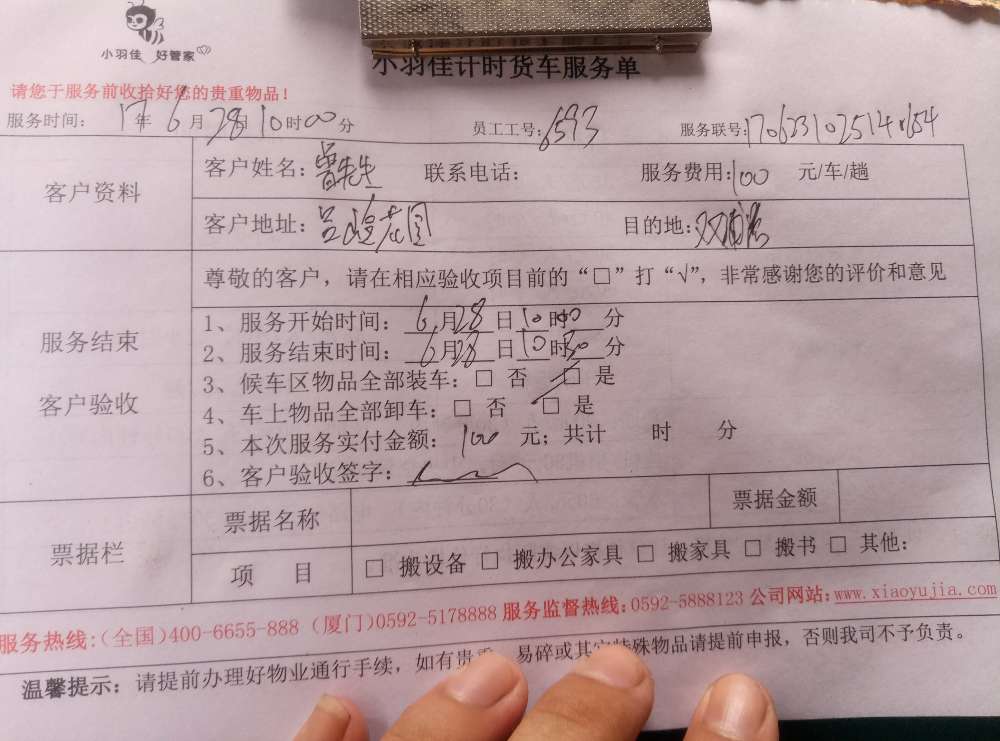 小羽佳 好管家
小羽佳计时货车服务单
请您于服务前收拾好您的贵重物品！
服务时间： 17年 6月 28日 10时00分 员工工号：6593 服务联号：
客户资料
客户姓名：曾先生 联系电话： 服务费用：100 元/车/趟
客户地址：吕岭花园 目的地：
服务结束
客户验收
尊敬的客户，请在相应验收项目前的“□”打“√”，非常感谢您的评价和意见
1、服务开始时间：6月28日10时00分
2、服务结束时间：6月28日10时30分
3、候车区物品全部装车：□ 否 □ 是
4、车上物品全部卸车：□ 否 □ 是
5、本次服务实付金额：100 元；共计 时 分
6、客户验收签字：
票据栏
票据名称 票据金额
项 目 □ 搬设备 □ 搬办公家具 □ 搬家具 □ 搬书 □ 其他：
服务热线：（全国）400-6655-888（厦门）0592-5178888 服务监督热线：0592-5888123 公司网站：www.xiaoyujia.com
温馨提示：请提前办理好物业通行手续，如有贵重、易碎或其它特殊物品请提前申报，否则我司不予负责。